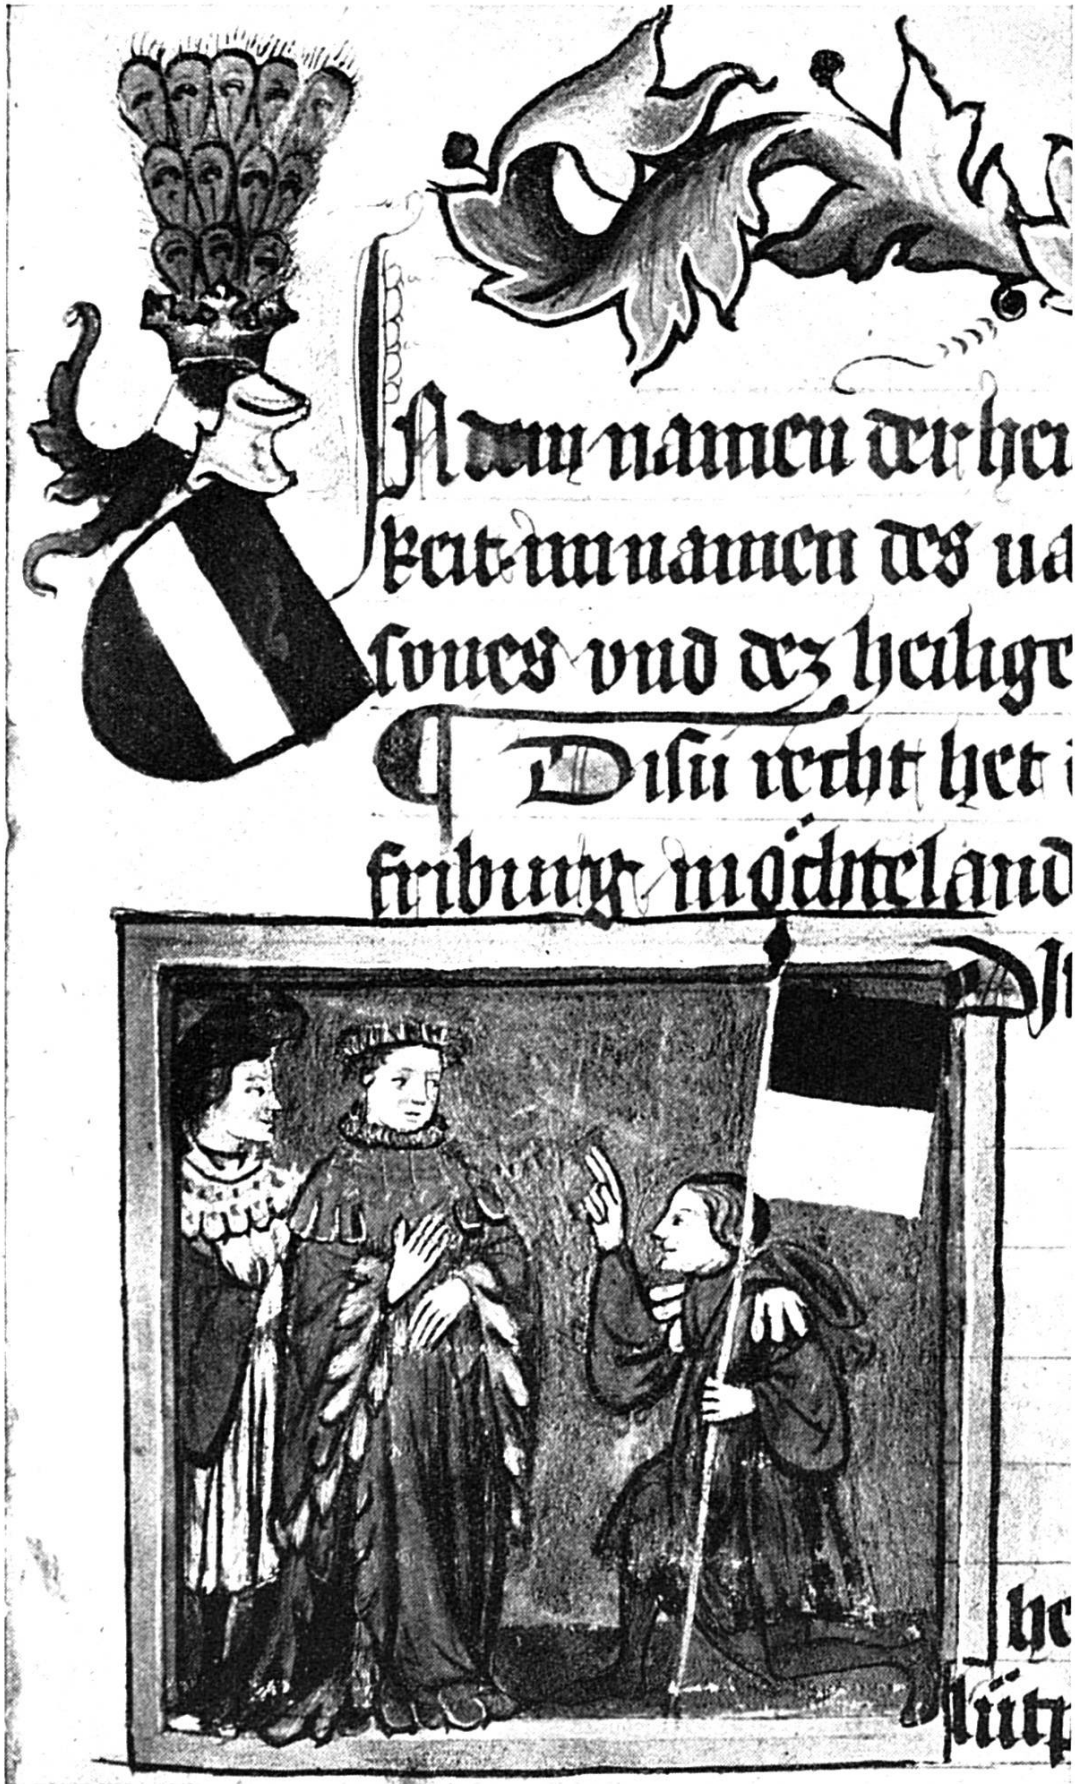 N dem namen der hei
keit im namen des va
sones vnd dez heilige
Disü recht het i
friburg möchteland
DI
he
lütp